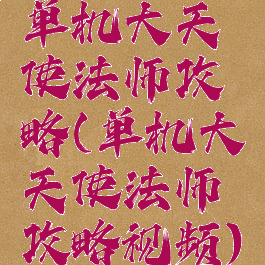 单机大天
使法师攻
略(单机大
天使法师
攻略视频)